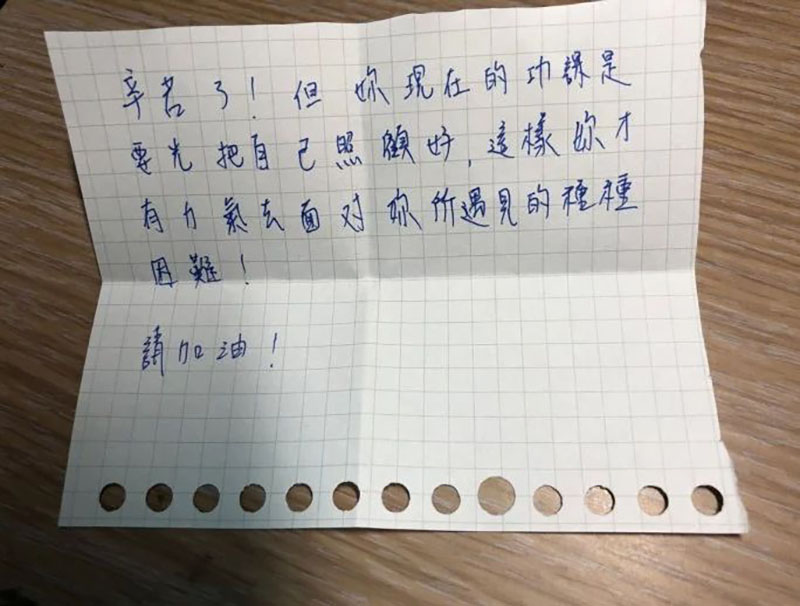 辛苦了！但妳現在的功課是
要先把自己照顧好，這樣妳才
有力氣去面对妳所遇見的種種
困難！
請加油！